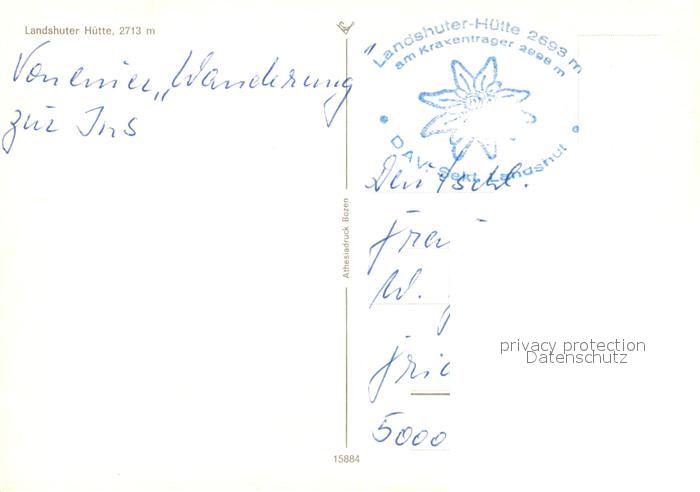 Landshuter Hütte, 2713 m
Von einer „Wanderung"
zur Ins
Athesiadruck Bozen
15884
Landshuter-Hütte 2693 m
am Kraxentrager 2998 m
DAV. Sekt. Landshut
Deutschl.
Frau
W.
5000
privacy protection
Datenschutz